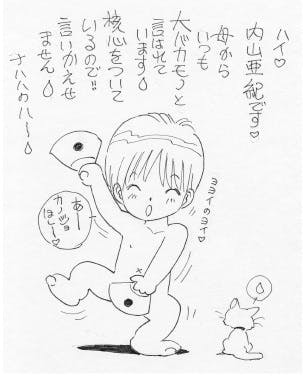 ハイ♡
内山亜紀です♡
母から
いつも
大バカモノと
言はれて
います💧
核心をついて
いるので!!
言いかえせ
ません💧
ナハハのハ〜💧
ヨヨイのヨイ♡
あー
カノジョ
ほしー♡